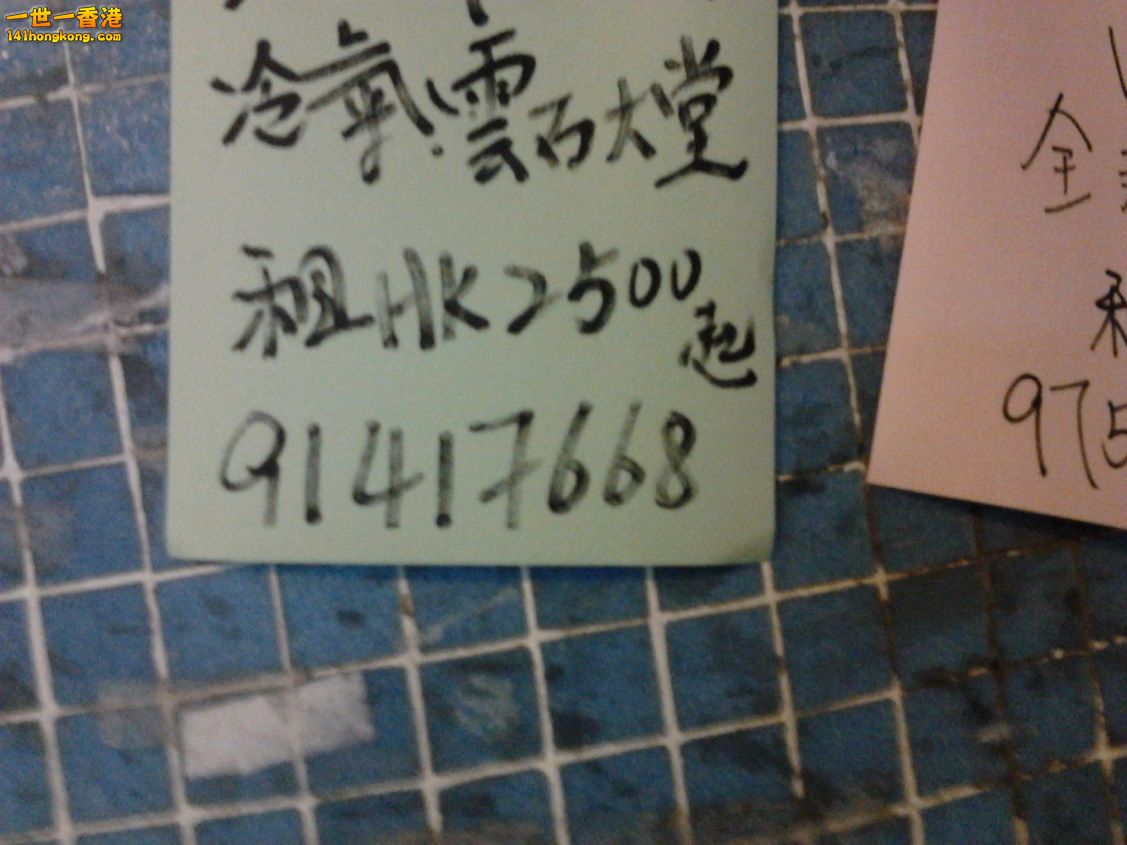 一世一香港
141hongkong.com
冷氣，雲石大堂
租HK2500起
91417668
全
租
975